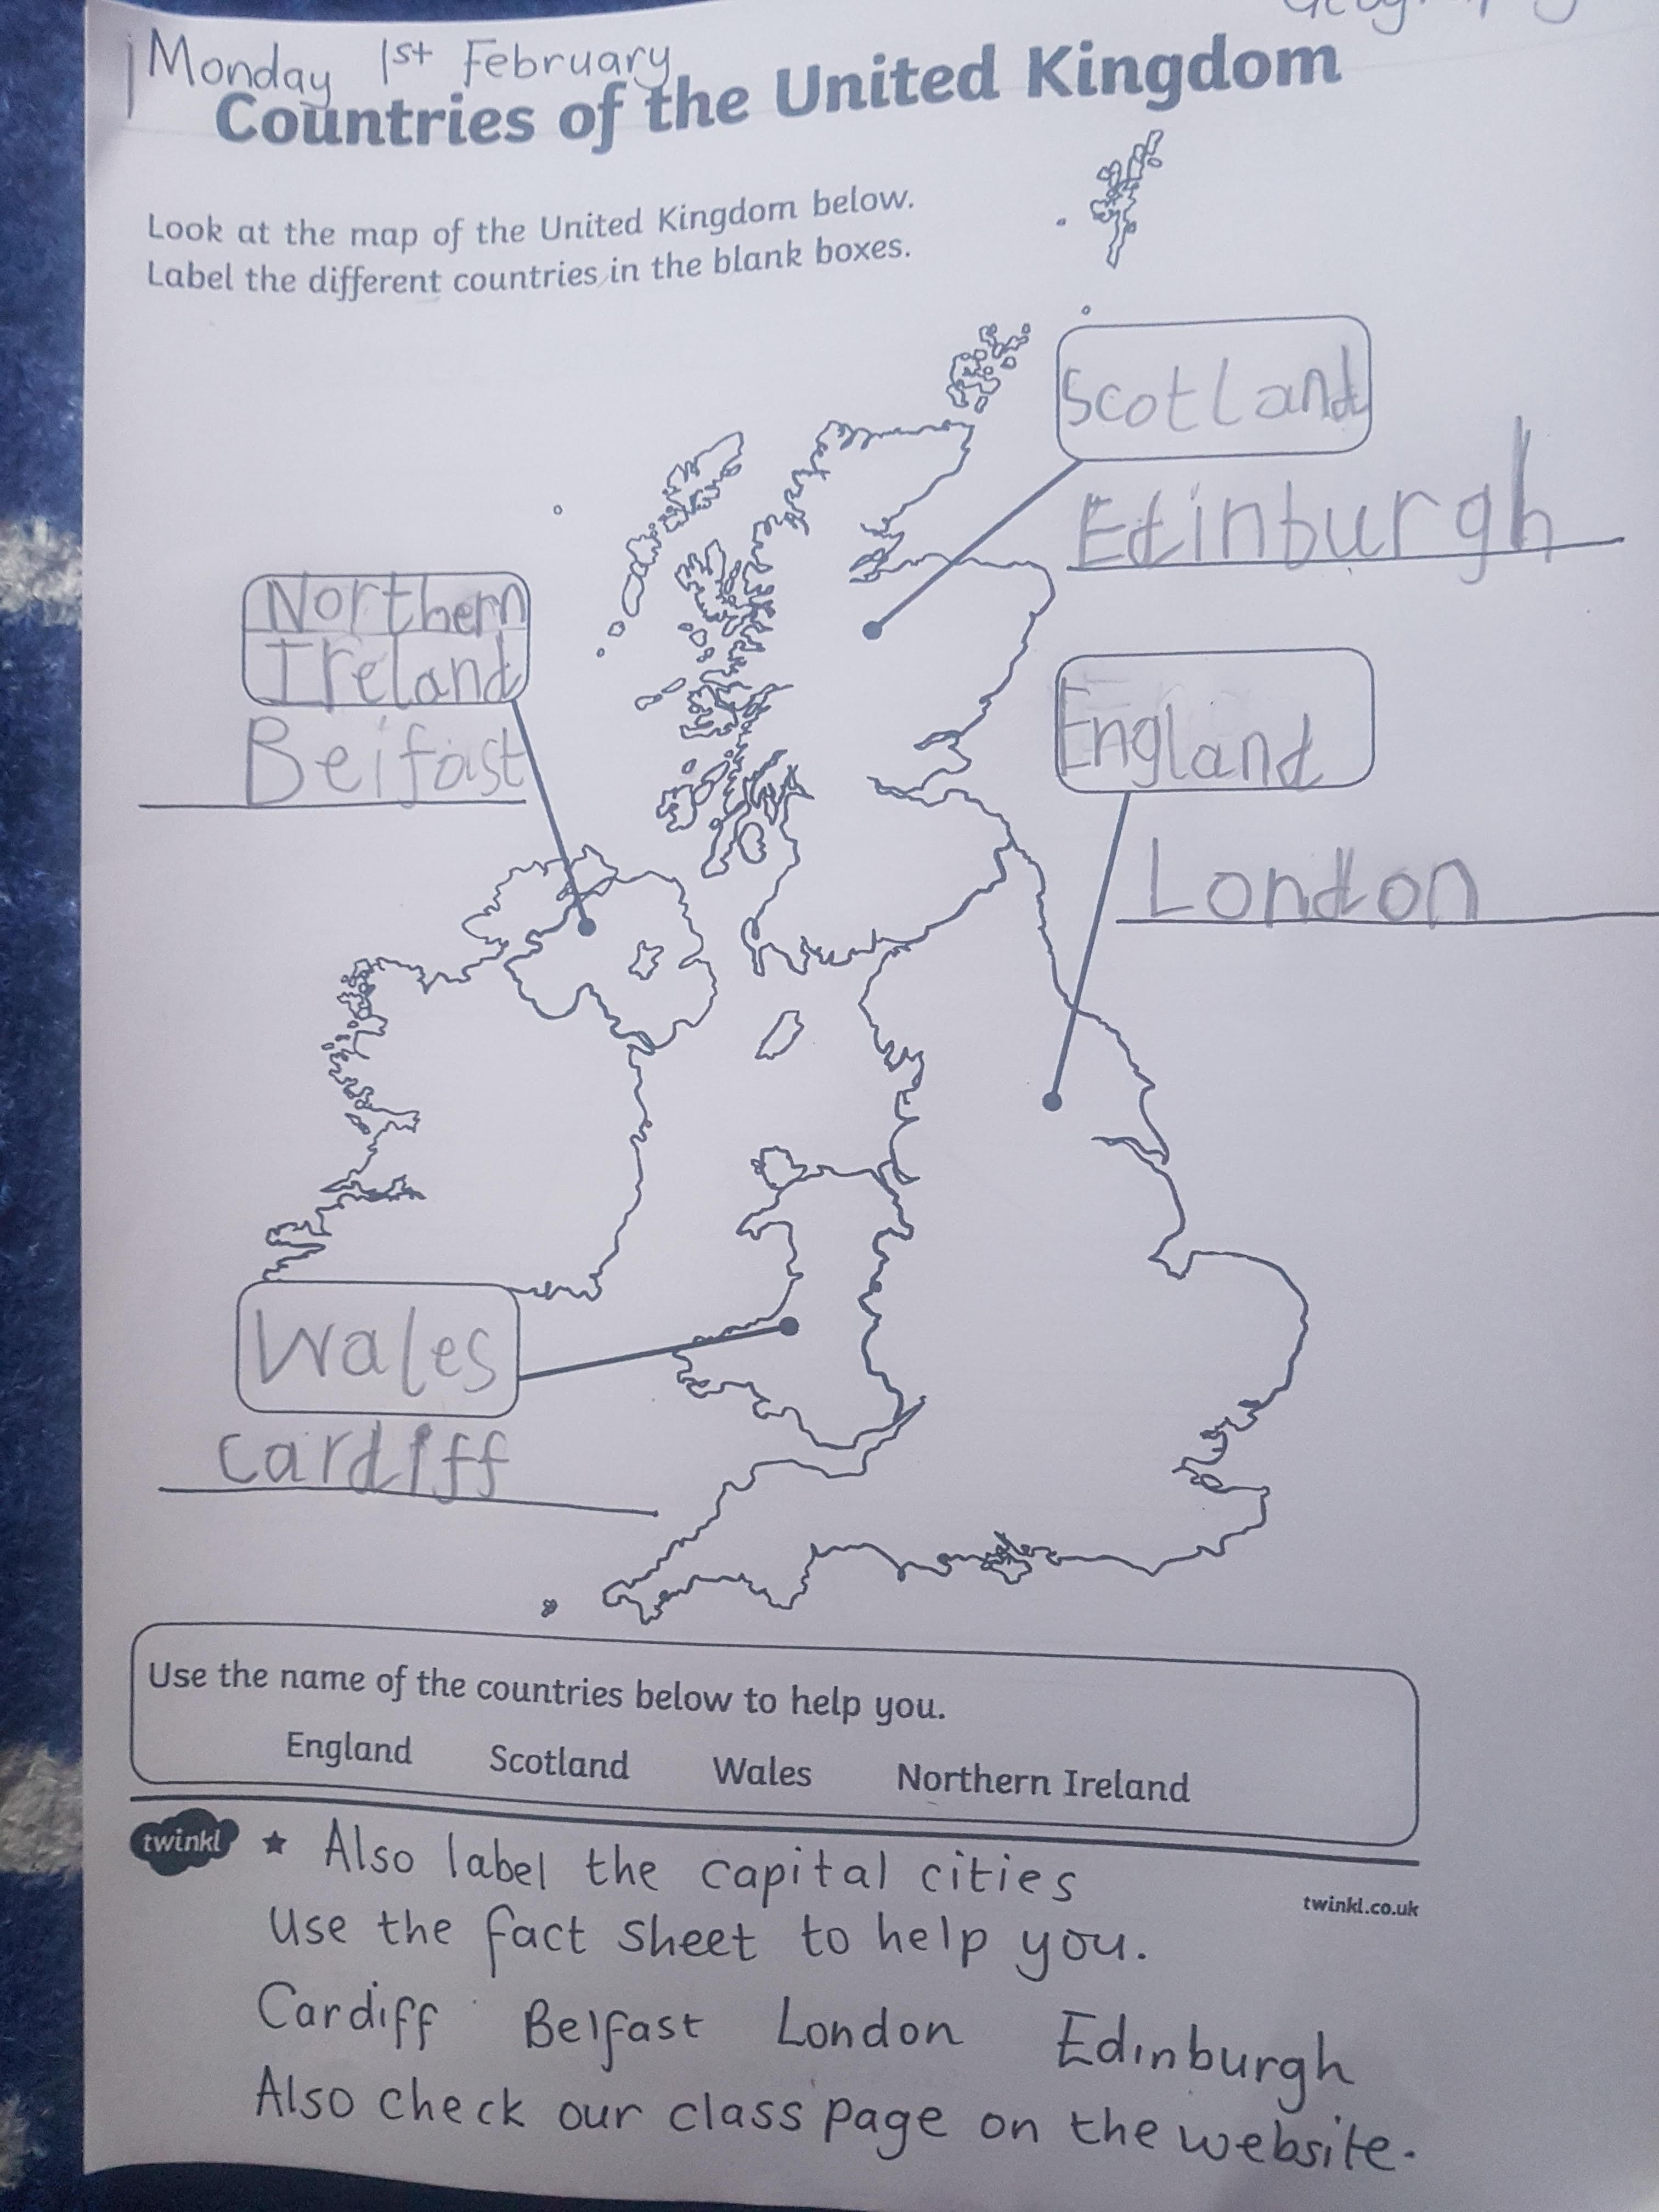 Geography
Monday 1st February
Countries of the United Kingdom
Look at the map of the United Kingdom below.
Label the different countries in the blank boxes.
Scotland
Edinburgh
Northern
Ireland
Beifast
England
London
Wales
cardiff
Use the name of the countries below to help you.
England Scotland Wales Northern Ireland
twinkl ★ Also label the capital cities
twinkl.co.uk
Use the fact sheet to help you.
Cardiff Belfast London Edinburgh
Also check our class page on the website.